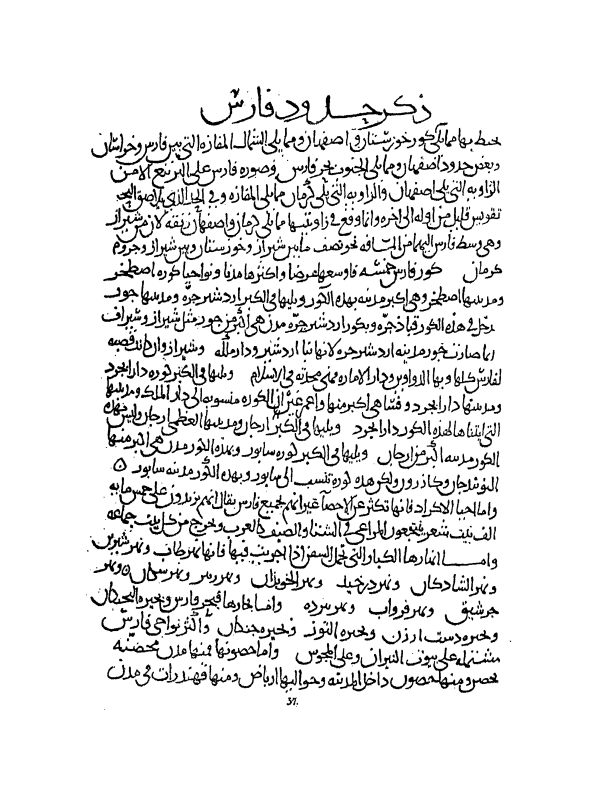 ذكر حدود فارس
يحيط بها مما يلي كور خوزستان و اصفهان ومما يلى الشمال المفازة التى بين فارس وخراسان
وبعض حدود اصفهان ومما يلى الجنوب بحر فارس وصورة فارس على التربيع الا من
الزاويه التى تلى اصفهان والزاويه التى تلى كرمان مما يلى المفازه وفى الحد الذي يلاصق البحر
تقويس قليل من اوله الى اخره وانما وقع فى زاويتيها مما يلى كرمان واصفهان زنقة لان من شيراز
وهى وسط فارس اليهما من المسافه نحو نصف ما بين شيراز وخوزستان وبين شيراز وجروم
كرمان كور فارس خمسه فاوسعها عرضا واكثرها مدنا ونواحيا كوره اصطخر
ومدينتها اصطخر وهى اكبر مدينه بهذه الكور ويليها فى الكبر اردشير خره ومدينتها جور
يدخل فى هذه الكور قباذ خره وبكور اردشير خره مدن هى اكبر من جور مثل شيراز وسيراف
انما صارت جور مدينه اردشير خره لانها بنا اردشير ودار ملكه وشيراز وان كانت قصبه
لفارس كلها وبها الدواوين ودار الاماره فهى محدثه فى الاسلام ويليها فى الكبر كوره دارابجرد
ومدينتها دارابجرد وفسا هى اكبر منها واعمر غير ان الكوره منسوبه الى دار الملك ومدينتها
التى ابتناها لهذه الكور دارابجرد ويليها فى الكبر ارجان ومدينتها العظمى ارجان وليس بهذه
الكور مدينه اكبر من ارجان ويليها فى الكبر كوره سابور وبهذه الكور مدن هى اكبر منها
النوبندجان وكازرون ولكن هذه كوره تنسب الى سابور وبهذه الكور مدينه سابور
واما احيا الاكراد فانها تكثر عن الاحصا غير انهم بجميع فارس يقال انهم يزيدون على خمس مايه
الف بيت شعر ينتجعون المراعى فى الشتا والصيف كالعرب ويخرج من كل بيت جماعه
واما انهارها الكبار والتى تحمل السفن اذا اجريت فيها فانها نهر طاب ونهر شيرين
ونهر الشاذكان ونهر درخيد ونهر الخوبذان ونهر رتين ونهر سكان ونهر
جرشيق ونهر فرواب ونهر تيرزه واما بحارها فبحر فارس وبحيره البختكان
وبحيره دست ارزن وبحيره التوز وبحيره جنكان واكثر نواحى فارس
مشتمله على بيوت النيران وعلى المجوس واما حصونها فمنها مدن محصنه
بحصن ومنها حصون داخل المدينه وحواليها ارباض ومنها قهندزات فى مدن